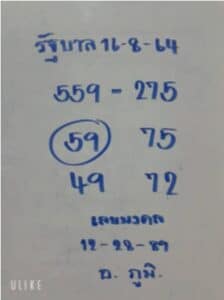 รัฐบาล 16-8-64
559 - 275
59 75
49 72
เลขมงคล
12-28-89
อ. ภูมิ.
ULIKE